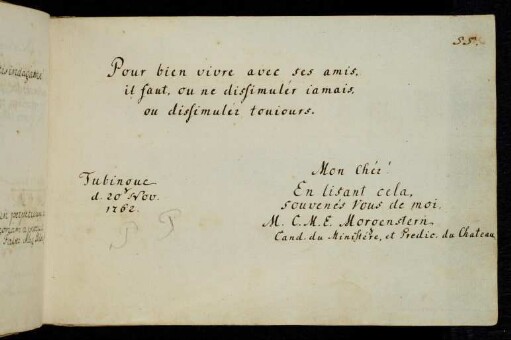 55.
Pour bien vivre avec ses amis,
il faut, ou ne dissimulér iamais,
ou dissimulér touiours.
Tubingue
d. 20 Nov.
1762.
Mon Chér!
En lisant cela,
souvenés Vous de moi.
M. C. M. E. Morgenstern
Cand. du Ministére, et Predic. du Chateau